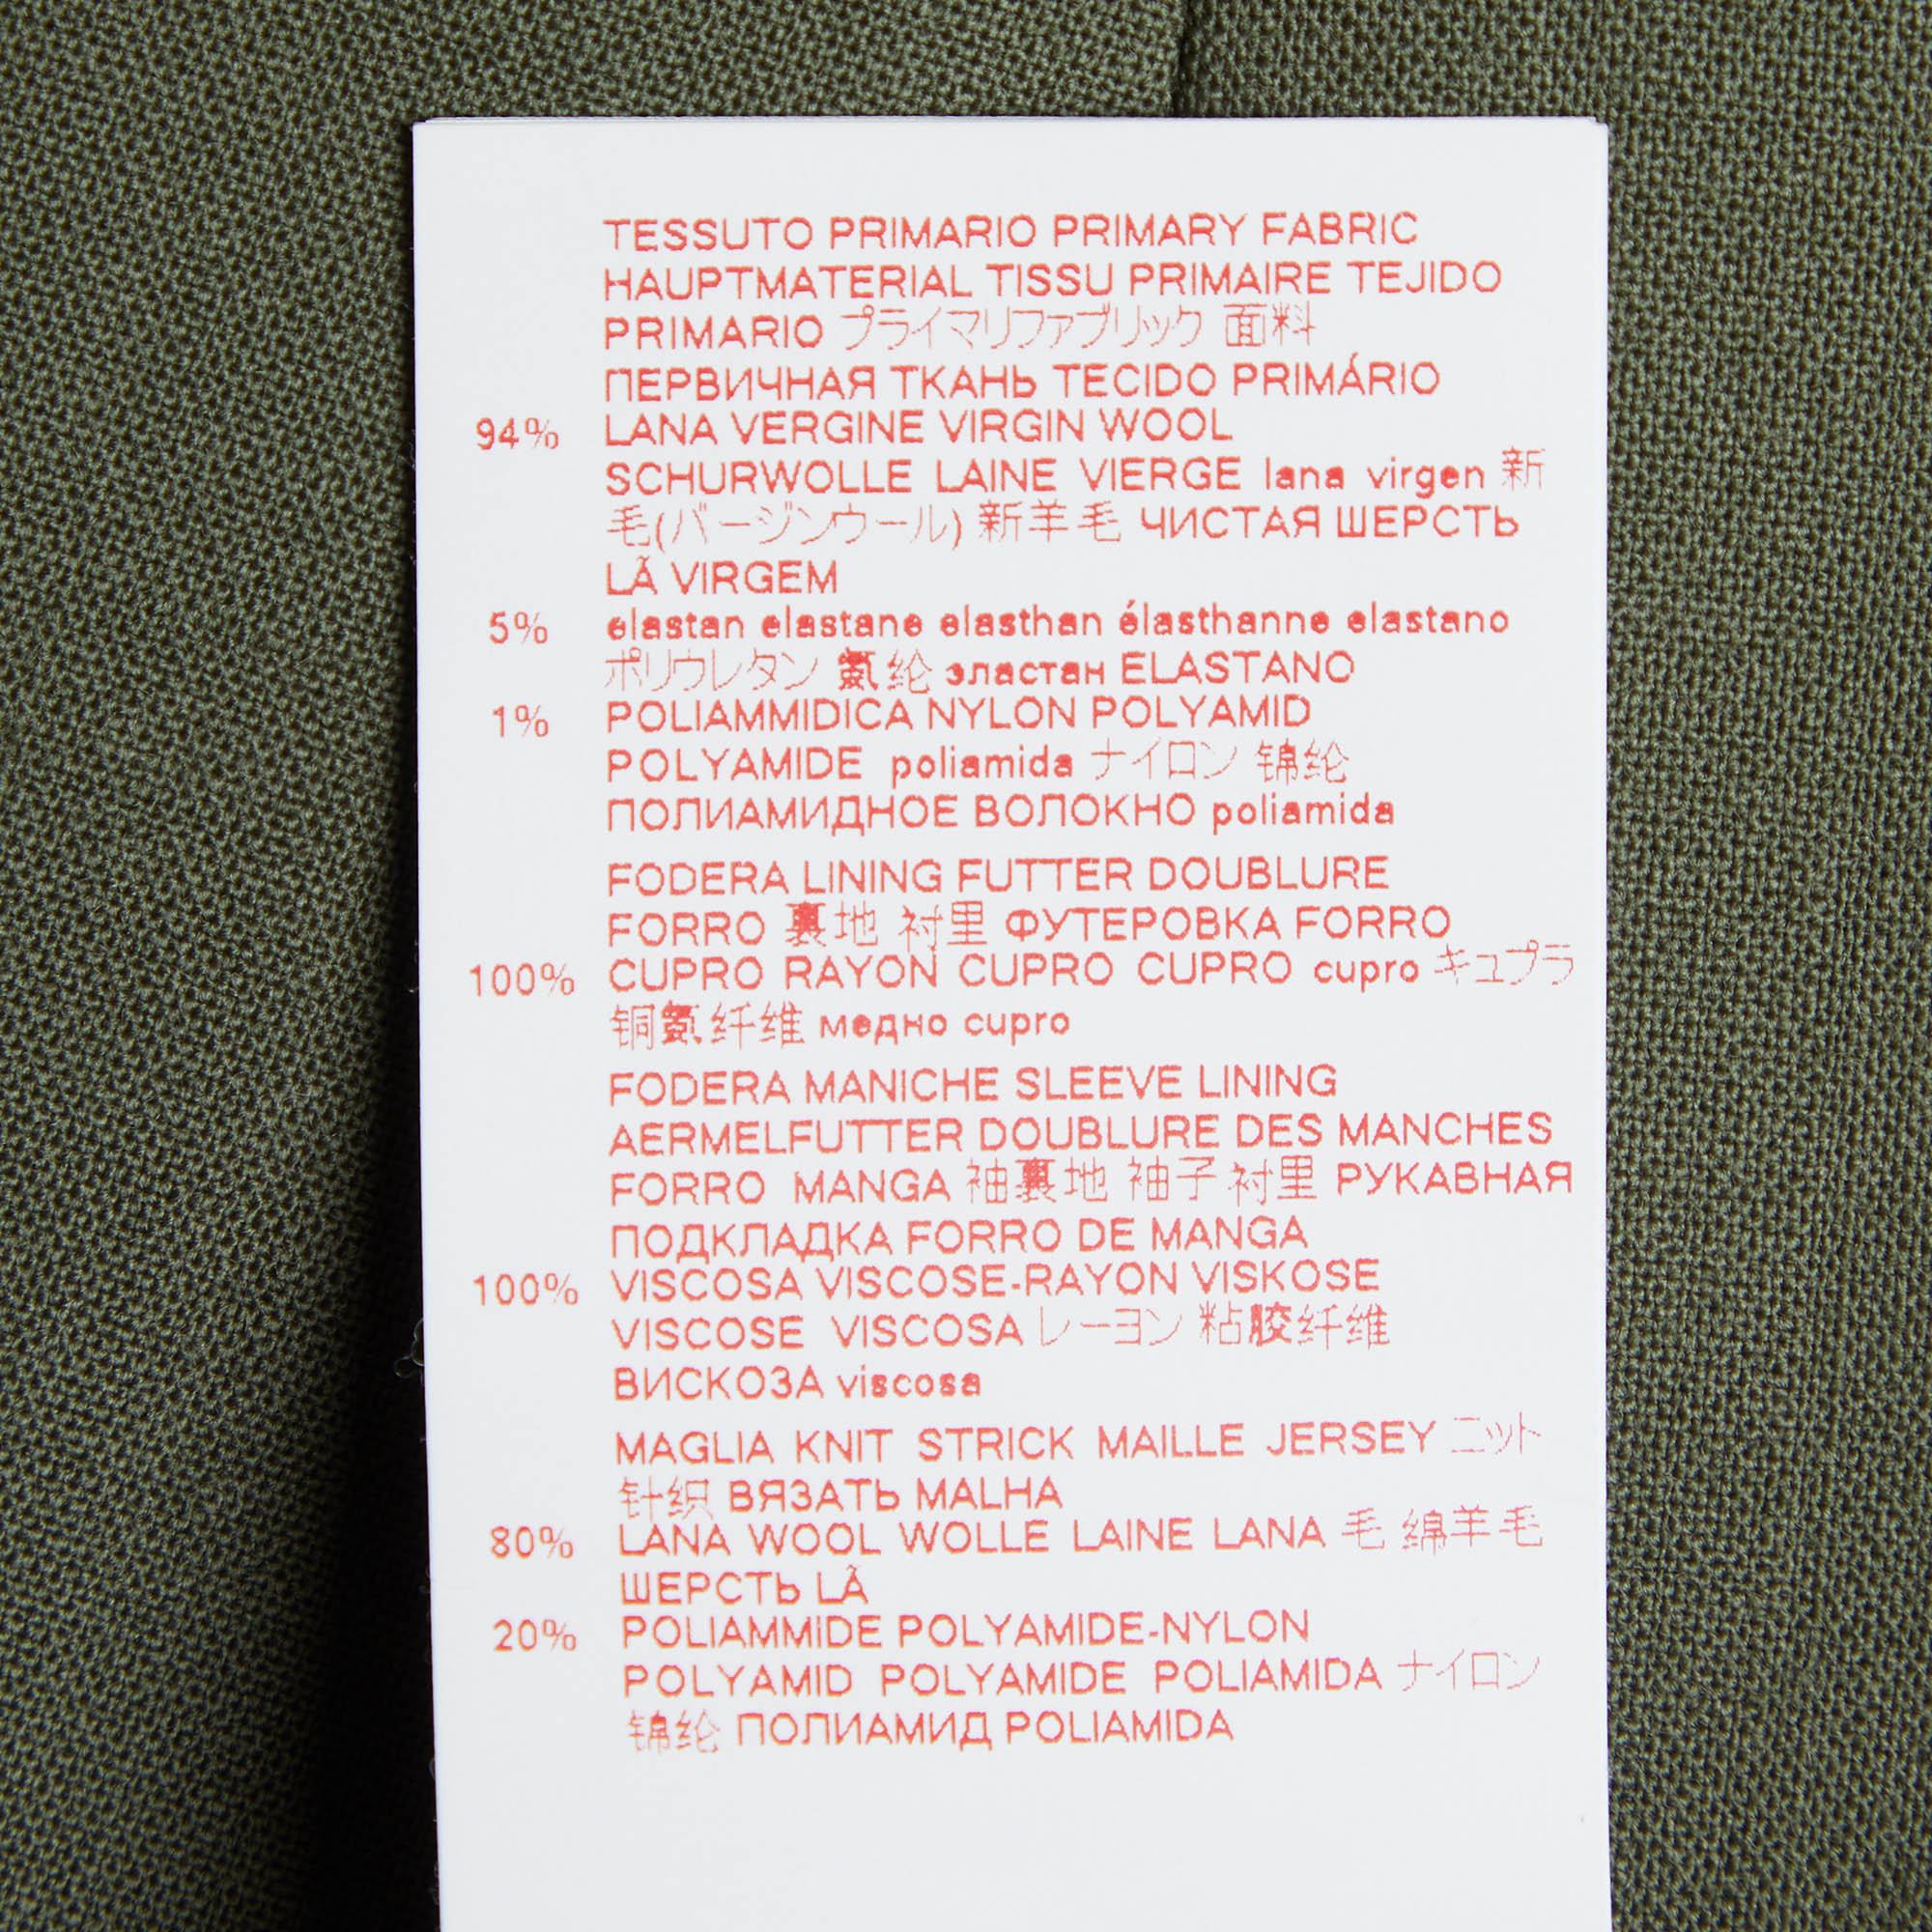 TESSUTO PRIMARIO PRIMARY FABRIC
HAUPTMATERIAL TISSU PRIMAIRE TEJIDO
PRIMARIO プライマリファブリック 面料
ПЕРВИЧНАЯ ТКАНЬ TECIDO PRIMÁRIO
94% LANA VERGINE VIRGIN WOOL
SCHURWOLLE LAINE VIERGE lana virgen 新
毛(バージンウール) 新羊毛 ЧИСТАЯ ШЕРСТЬ
LÃ VIRGEM
5% elastan elastane elasthan élasthanne elastano
ポリウレタン 氨纶 эластан ELASTANO
1% POLIAMMIDICA NYLON POLYAMID
POLYAMIDE poliamida ナイロン 锦纶
ПОЛИАМИДНОЕ ВОЛОКНО poliamida
FODERA LINING FUTTER DOUBLURE
FORRO 裏地 衬里 ФУТЕРОВКА FORRO
100% CUPRO RAYON CUPRO CUPRO cupro キュプラ
铜氨纤维 медно cupro
FODERA MANICHE SLEEVE LINING
AERMELFUTTER DOUBLURE DES MANCHES
FORRO MANGA 袖裏地 袖子衬里 РУКАВНАЯ
ПОДКЛАДКА FORRO DE MANGA
100% VISCOSA VISCOSE-RAYON VISKOSE
VISCOSE VISCOSA レーヨン 粘胶纤维
ВИСКОЗА viscosa
MAGLIA KNIT STRICK MAILLE JERSEY ニット
针织 ВЯЗАТЬ MALHA
80% LANA WOOL WOLLE LAINE LANA 毛 绵羊毛
ШЕРСТЬ LÃ
20% POLIAMMIDE POLYAMIDE-NYLON
POLYAMID POLYAMIDE POLIAMIDA ナイロン
锦纶 ПОЛИАМИД POLIAMIDA